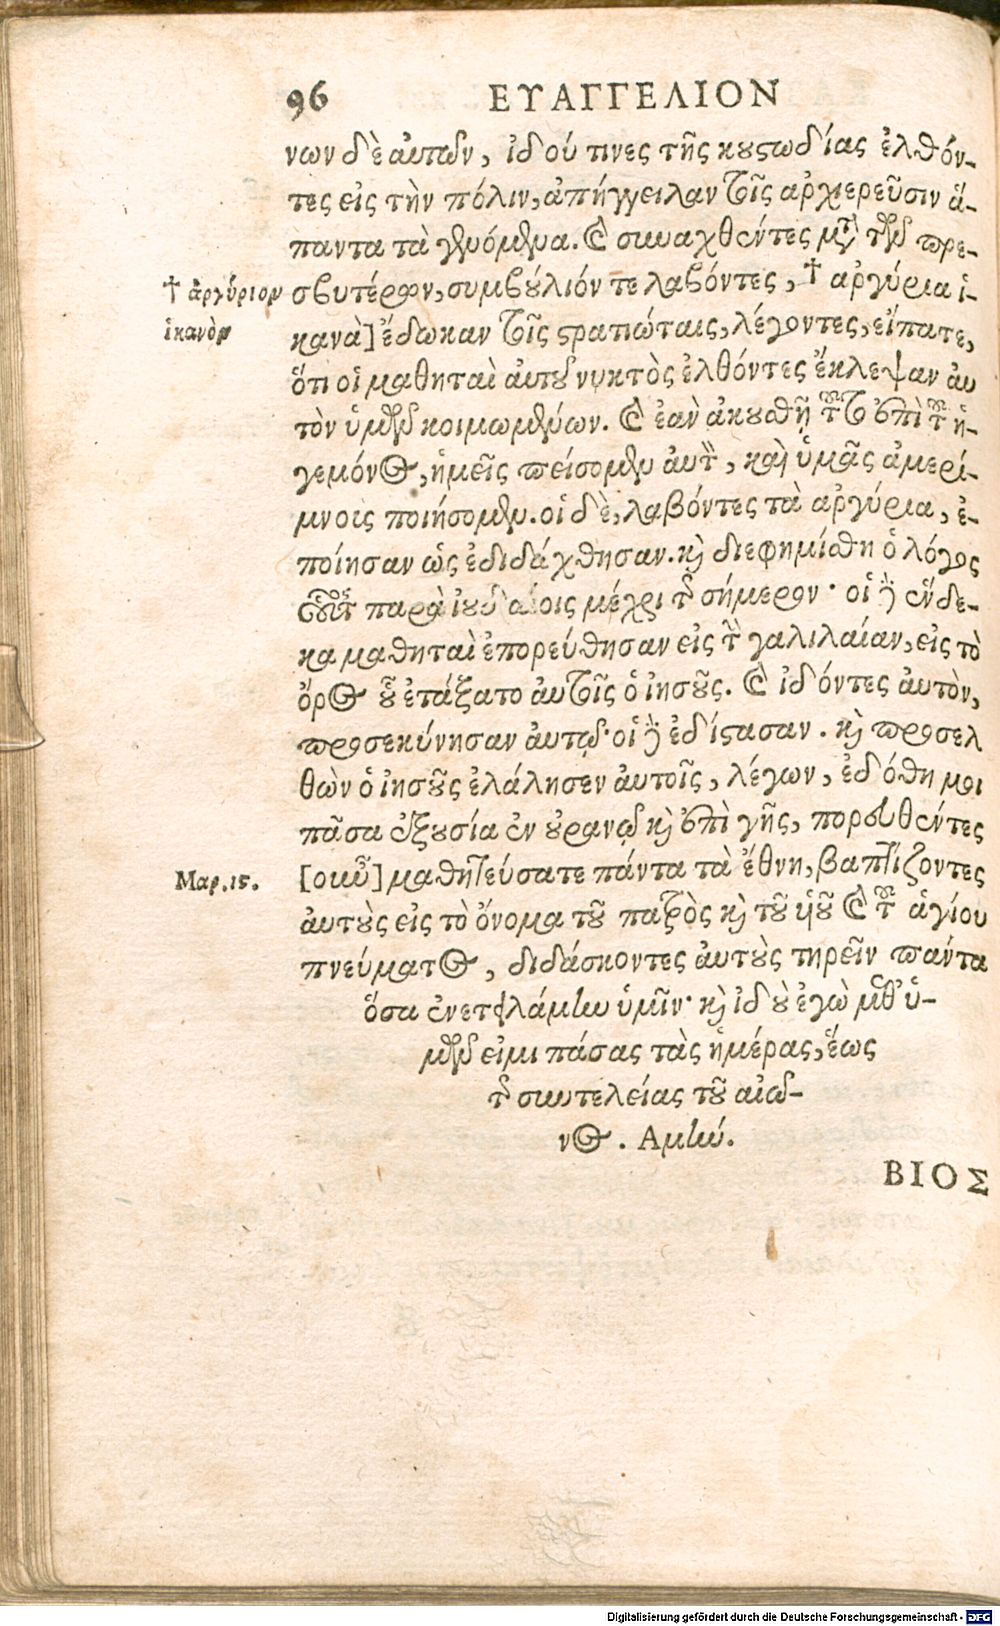 96 ΕΥΑΓΓΕΛΙΟΝ
νων δὲ αὐτῶν, ἰδού τινες τῆς κουστωδίας ἐλθόν-
τες εἰς τὴν πόλιν, ἀπήγγειλαν τοῖς ἀρχιερεῦσιν ἅ-
παντα τὰ γενόμενα. καὶ συναχθέντες μετὰ τῶν πρε-
† ἀργύριον
ἱκανὸν
σβυτέρων, συμβούλιόν τε λαβόντες, † ἀργύρια ἱ-
κανὰ] ἔδωκαν τοῖς στρατιώταις, λέγοντες, εἴπατε,
ὅτι οἱ μαθηταὶ αὐτοῦ νυκτὸς ἐλθόντες ἔκλεψαν αὐ
τὸν ὑμῶν κοιμωμένων. καὶ ἐὰν ἀκουσθῇ τοῦτο ἐπὶ τοῦ ἡ-
γεμόνος, ἡμεῖς πείσομεν αὐτὸν, καὶ ὑμᾶς ἀμερί-
μνους ποιήσομεν. οἱ δὲ, λαβόντες τὰ ἀργύρια, ἐ-
ποίησαν ὡς ἐδιδάχθησαν. καὶ διεφημίσθη ὁ λόγος
οὗτος παρὰ ἰουδαίοις μέχρι τῆς σήμερον· οἱ δὲ ἕνδε-
κα μαθηταὶ ἐπορεύθησαν εἰς τὴν γαλιλαίαν, εἰς τὸ
ὄρος οὗ ἐτάξατο αὐτοῖς ὁ ἰησοῦς. καὶ ἰδόντες αὐτὸν,
προσεκύνησαν αὐτῷ· οἱ δὲ ἐδίστασαν. καὶ προσελ
θὼν ὁ ἰησοῦς ἐλάλησεν αὐτοῖς, λέγων, ἐδόθη μοι
πᾶσα ἐξουσία ἐν οὐρανῷ καὶ ἐπὶ γῆς, πορευθέντες
Μαρ. 15.
[οὖν] μαθητεύσατε πάντα τὰ ἔθνη, βαπτίζοντες
αὐτοὺς εἰς τὸ ὄνομα τοῦ πατρὸς καὶ τοῦ υἱοῦ καὶ τοῦ ἁγίου
πνεύματος, διδάσκοντες αὐτοὺς τηρεῖν πάντα
ὅσα ἐνετειλάμην ὑμῖν· καὶ ἰδοὺ ἐγὼ μεθ' ὑ-
μῶν εἰμι πάσας τὰς ἡμέρας, ἕως
τῆς συντελείας τοῦ αἰῶ-
νος. Ἀμήν.
ΒΙΟΣ
Digitalisierung gefördert durch die Deutsche Forschungsgemeinschaft - DFG